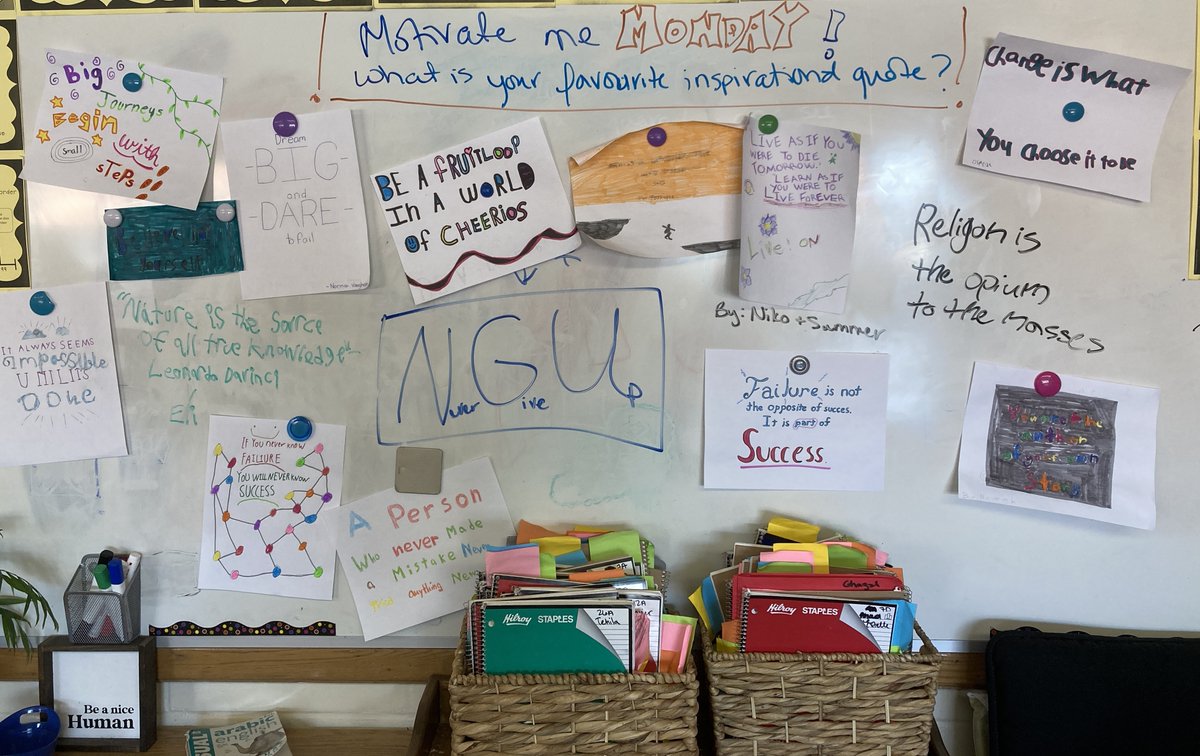 Motivate me MONDAY!
What is your favourite inspirational quote?
Big
Journeys
Begin
with
Small
STEPS!!
Dream
-BIG-
and
-DARE-
to fail
BE A FRUITLOOP
In A WORLD
of CHEERIOS
LIVE AS IF YOU
WERE TO DIE
TOMORROW.
LEARN AS IF
YOU WERE TO
LIVE FOREVER
Live! ON
By: Niko + Summer
Change is What
You choose it to be
Religon is
the opium
to the masses
Believe in
Yourself
IT ALWAYS SEEMS
impossible
UNTIL ITS
DONE
"Nature is the Source
of all true knowledge"
Leonardo Davinci
Eli
NGU
Never Give Up
IF You never know
FAILIURE
YOU WILL NEVER KNOW
SUCCESS
A Person
Who never Made
a Mistake Never
tried anything New
Failure is not
the opposite of succes.
It is part of
Success
Hilroy STAPLES
Hilroy STAPLES
Be a nice
Human
arabic
english